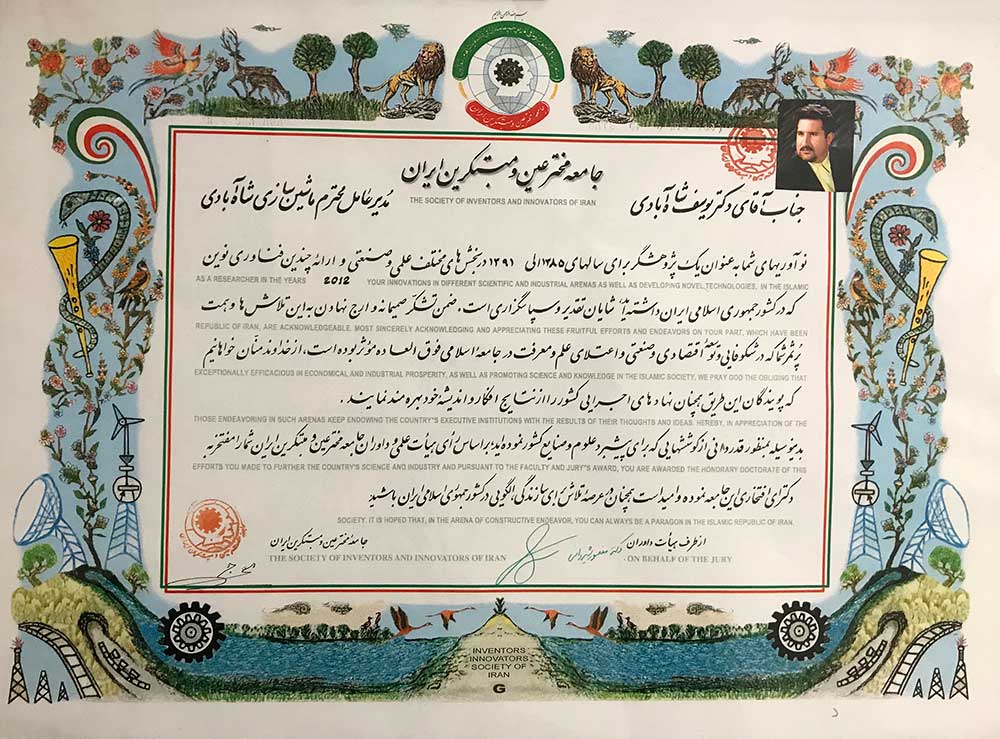 جامعه مخترعین و مبتکرین ایران
THE SOCIETY OF INVENTORS AND INNOVATORS OF IRAN
جناب آقای دکتر یوسف شاه آبادی مدیر عامل محترم ماشین سازی شاه آبادی
نوآوریهای شما به عنوان یک پژوهشگر برای سالهای ۱۳۸۵ الی ۱۳۹۱ در بخش های مختلف علمی و صنعتی و ارائه چندین فناوری نوین
AS A RESEARCHER IN THE YEARS 2012 YOUR INNOVATIONS IN DIFFERENT SCIENTIFIC AND INDUSTRIAL ARENAS AS WELL AS DEVELOPING NOVEL TECHNOLOGIES, IN THE ISLAMIC
که در کشور جمهوری اسلامی ایران داشته اید، شایان تقدیر و سپاسگزاری است، ضمن تشکر صمیمانه و ارج نهادن به این تلاش ها و همت
REPUBLIC OF IRAN, ARE ACKNOWLEDGEABLE. MOST SINCERELY ACKNOWLEDGING AND APPRECIATING THESE FRUITFUL EFFORTS AND ENDEAVORS ON YOUR PART, WHICH HAVE BEEN
پرثمر شما که در شکوفایی و توسعه اقتصادی و صنعتی و اعتلای علم و معرفت در جامعه اسلامی فوق العاده مؤثر بوده است، از خداوند منان خواهانیم
EXCEPTIONALLY EFFICACIOUS IN ECONOMICAL AND INDUSTRIAL PROSPERITY, AS WELL AS PROMOTING SCIENCE AND KNOWLEDGE IN THE ISLAMIC SOCIETY, WE PRAY GOD THE OBLIGING THAT
که پویندگان این طریق همچنان نهادهای اجرایی کشور را از نتایج افکار و اندیشه خود بهره مند نمایند.
THOSE ENDEAVORING IN SUCH ARENAS KEEP ENDOWING THE COUNTRY'S EXECUTIVE INSTITUTIONS WITH THE RESULTS OF THEIR THOUGHTS AND IDEAS. HEREBY, IN APPRECIATION OF THE
بدینوسیله بمنظور قدردانی از کوششهایی که برای پیشبرد علوم و صنایع کشور نموده اید؛ براساس رأی هیأت علمی و داوران جامعه مخترعین و مبتکرین ایران شما را مفتخر به
EFFORTS YOU MADE TO FURTHER THE COUNTRY'S SCIENCE AND INDUSTRY AND PURSUANT TO THE FACULTY AND JURY'S AWARD, YOU ARE AWARDED THE HONORARY DOCTORATE OF THIS
دکترای افتخاری این جامعه نموده و امید است همچنان در عرصه تلاش برای سازندگی، الگویی در کشور جمهوری اسلامی ایران باشید.
SOCIETY. IT IS HOPED THAT, IN THE ARENA OF CONSTRUCTIVE ENDEAVOR, YOU CAN ALWAYS BE A PARAGON IN THE ISLAMIC REPUBLIC OF IRAN.
از طرف هیأت داوران
ON BEHALF OF THE JURY
جامعه مخترعین و مبتکرین ایران
THE SOCIETY OF INVENTORS AND INNOVATORS OF IRAN
INVENTORS
INNOVATORS
SOCIETY OF
IRAN
G